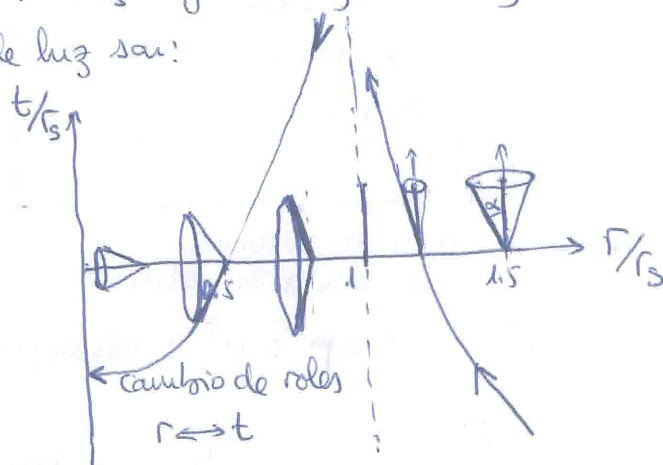 de luz son:
t/rs
α
r/rs
.5
1
1.5
cambio de roles
r ↔ t